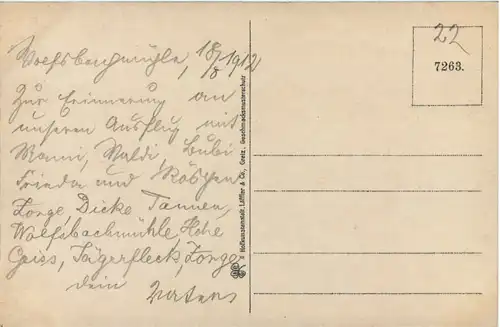 Wolfsbachmühle, 18/8 1912
Zur Erinnerung an
unseren Ausflug mit
Manni, Waldi, Bubi
Frieda und Röschen
Zorge, Dicke Tannen,
Wolfsbachmühle, Hohe
Geiss, Jägerfleck, Zorge
dein
22
7263.
Hofkunstanstalt, Löffler & Co., Greiz. Geschmacksmusterschutz